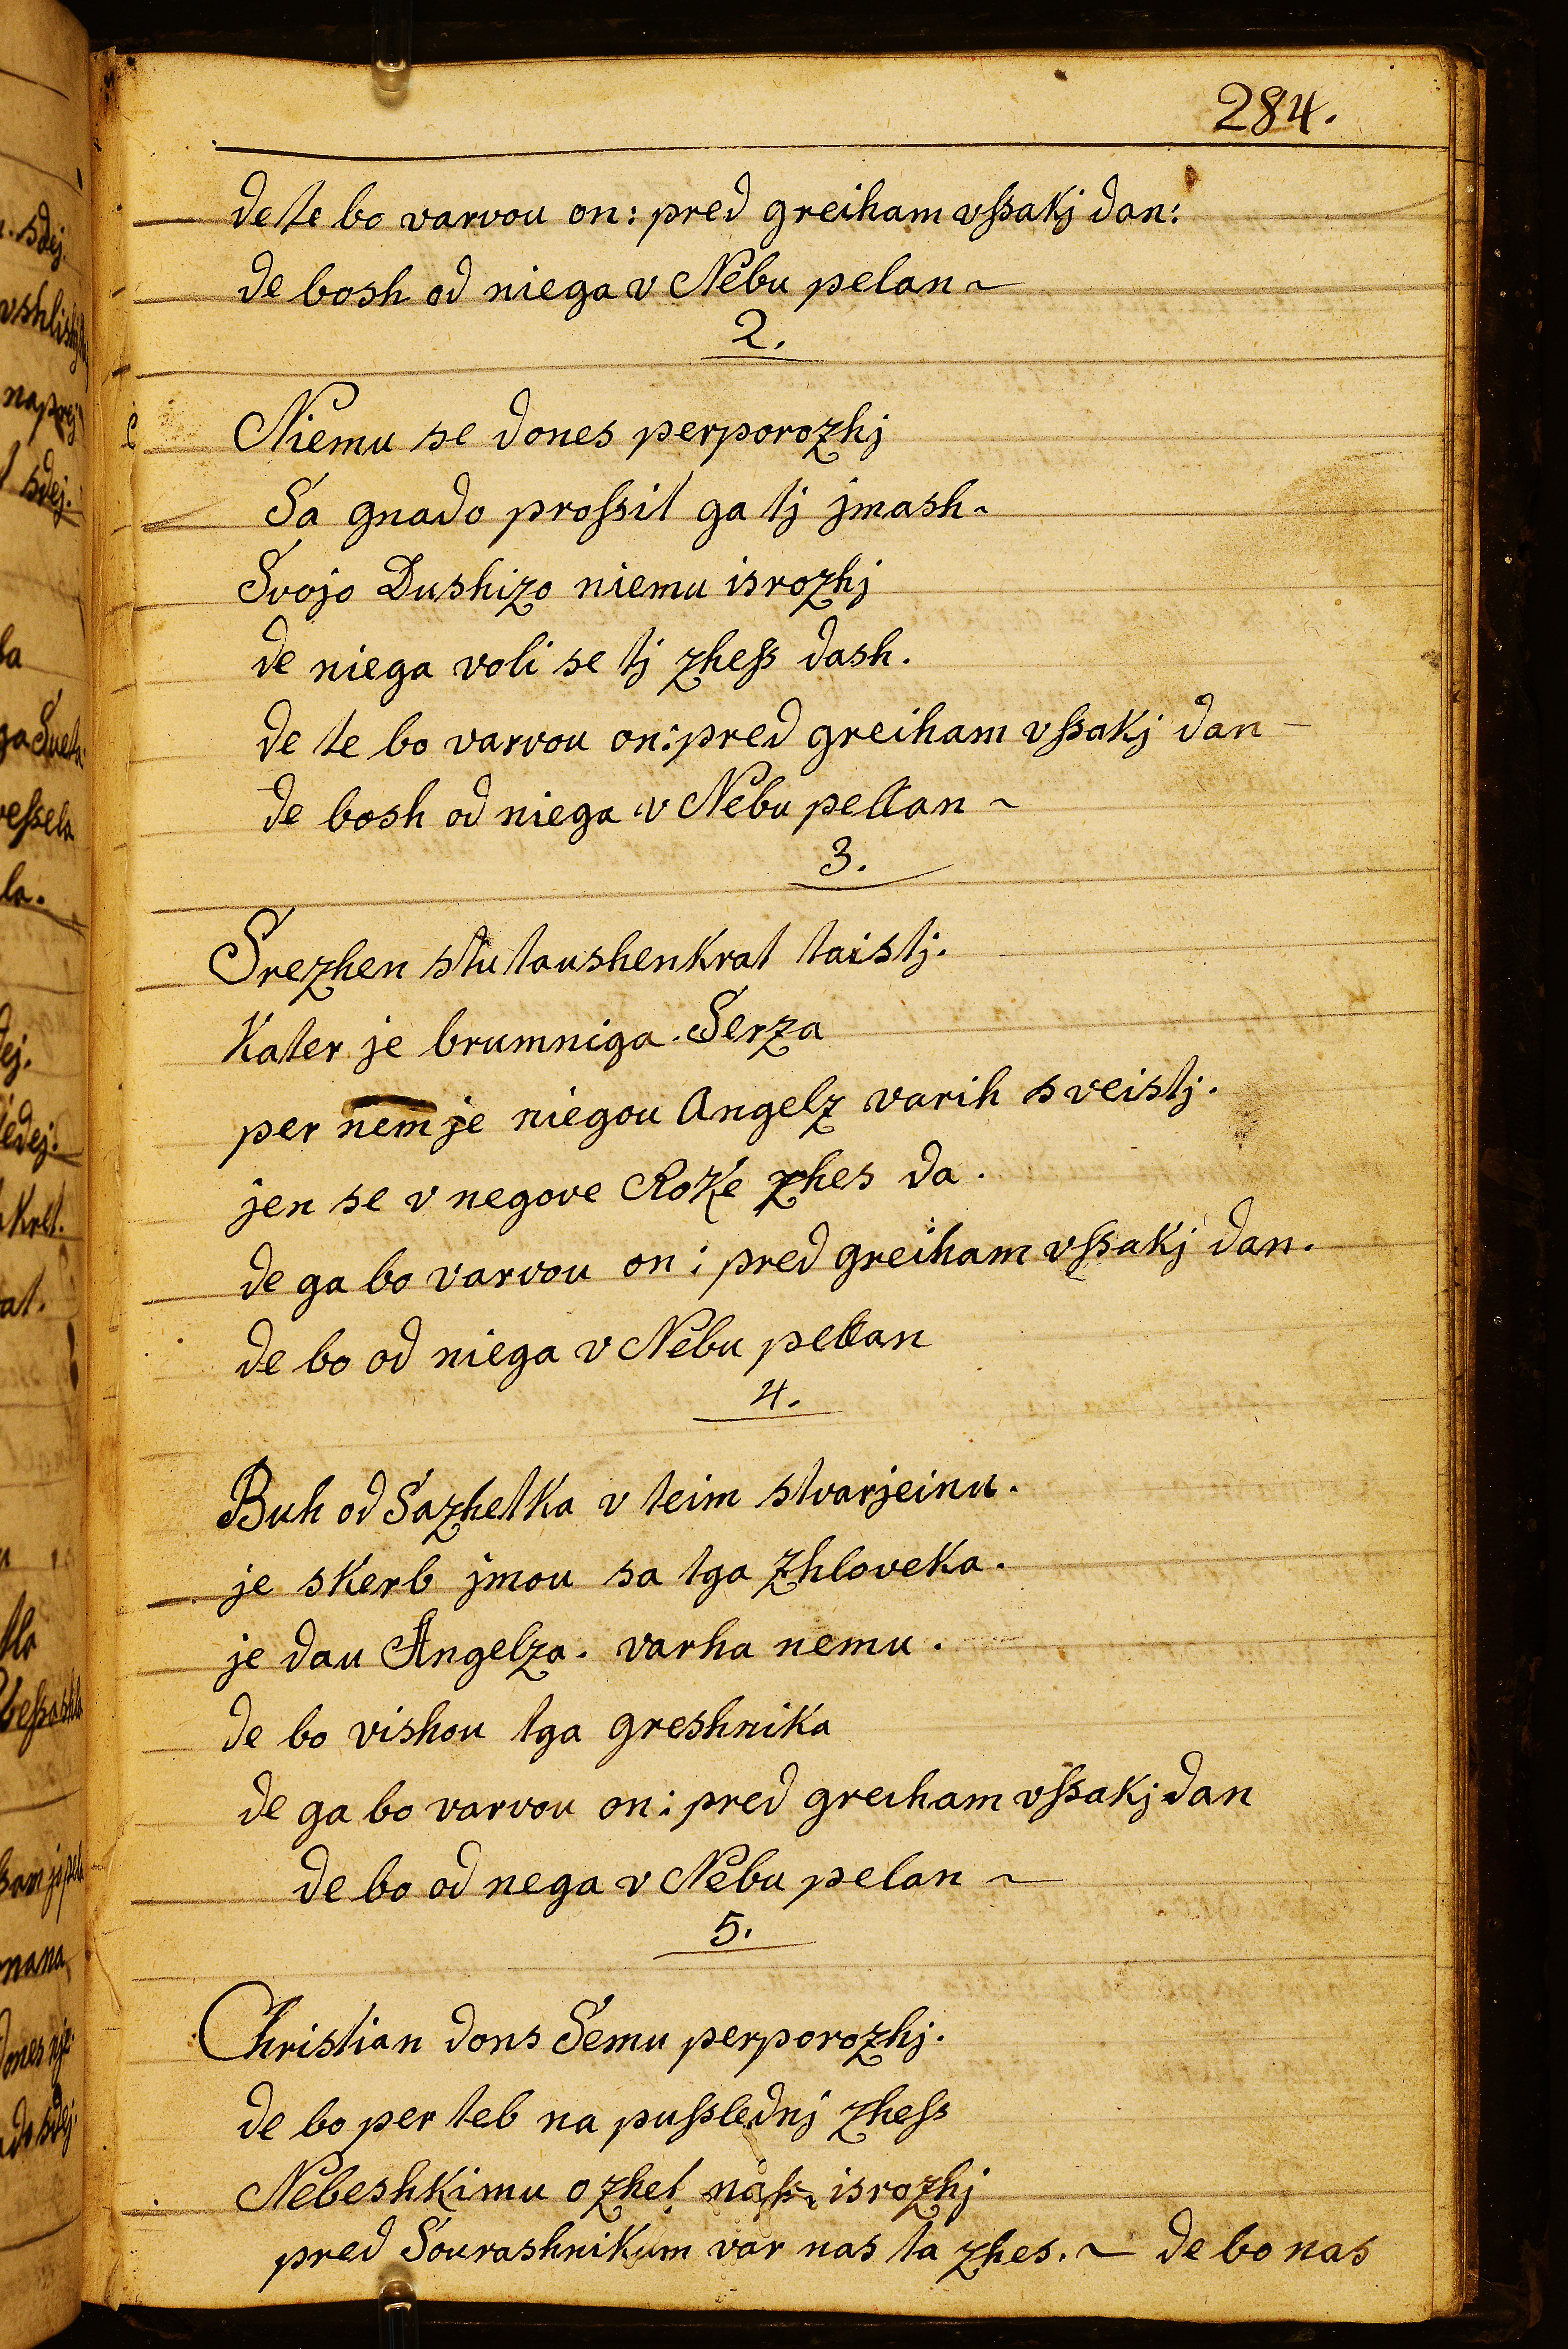 284.
de te bo varvou on: pred greiham vſsakj dan:
de bosh od niega v Nebu pelan ~
2.
Niemu se dones perporozhj
Sa gnado proſsit ga tj jmash.
Svojo Dushizo niemu isrozhj
de niega voli se tj zheſs dash.
de te bo varvou on: pred greiham vſsakj dan –
de bosh od niega v Nebu pellan ~
3.
Srezhen stutaushenkrat taistj.
Kater je brumniga. Serza
per nem je niegou Angelz varih sveistj.
jen se v negove Roke zhes da.
de ga bo varvou on: pred greiham vſsakj dan.
de bo od niega v Nebu pellan
4.
Buh od Sazhetka v teim stvarjeinu.
je skerb jmou sa tga zhloveka.
je dau Angelza. varha nemu.
de bo vishou tga greshnika
de ga bo varvou on: pred greiham vſsakj dan
de bo od nega v Nebu pelan ~
5.
Christian dons Semu perporozhj.
de bo per teb na puſslednj zheſs
Nebeshkimu ozhet isrozhj
pred Sourashnikum var nas ta zhes. ~ de bo nas